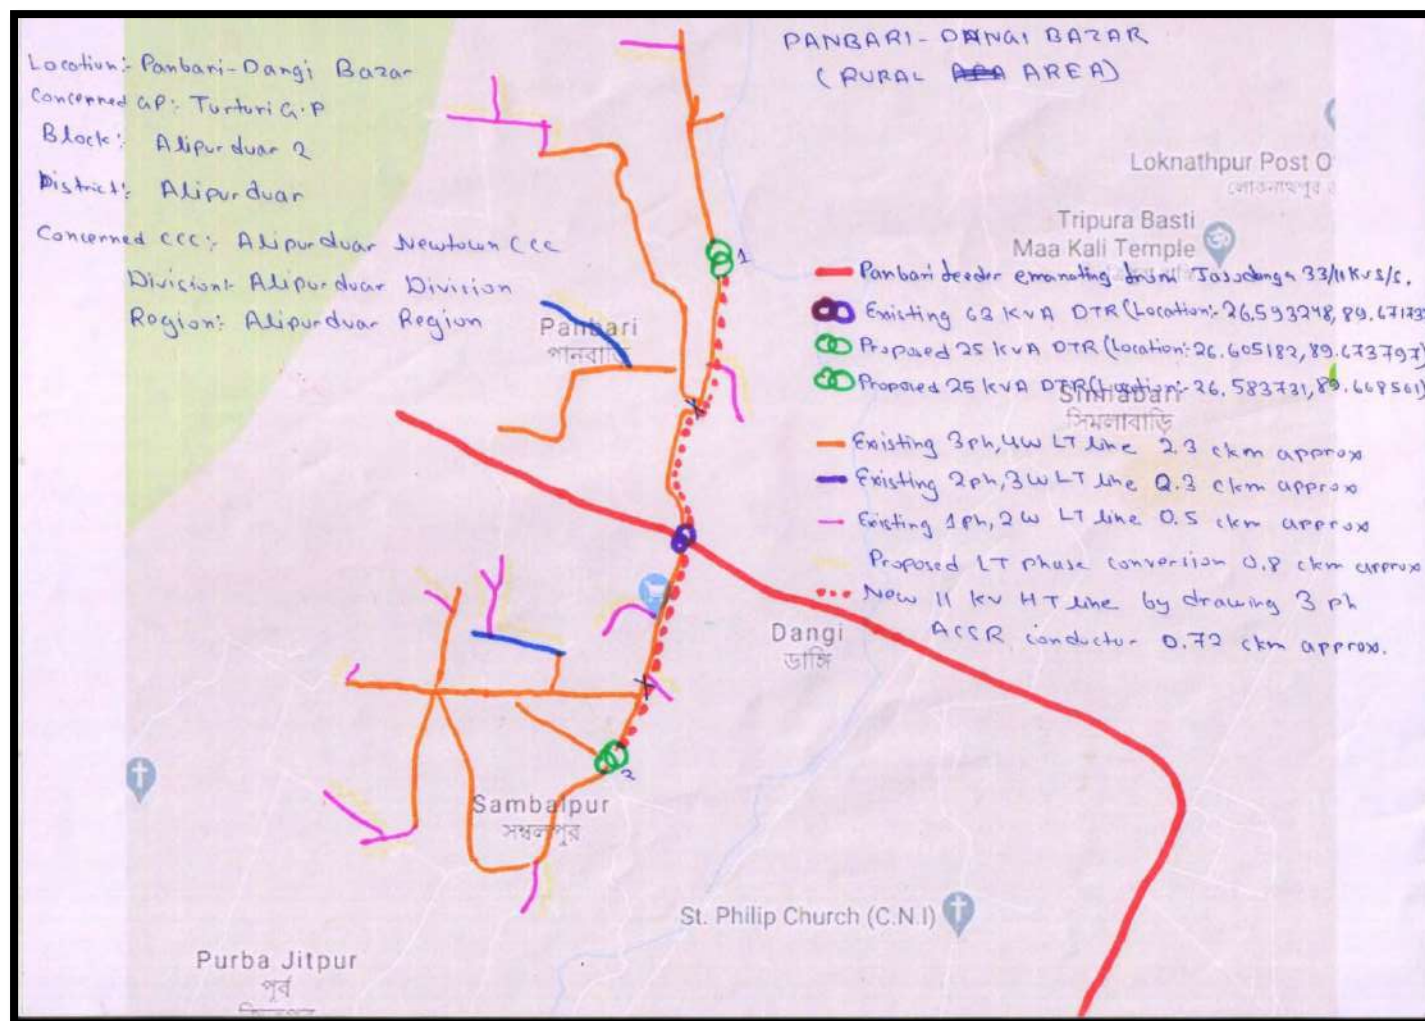 PANBARI-DANGI BAZAR
(RURAL AREA)
Location:- Panbari-Dangi Bazar
Concerned GP:- Turturi G.P
Block:- Alipurduar 2
District:- Alipurduar
Concerned CCC:- Alipurduar Newtown CCC
Division:- Alipurduar Division
Region:- Alipurduar Region
Loknathpur Post O
Tripura Basti
Maa Kali Temple
Panbari
পানবাড়ি
1
Panbari feeder emanating from Jasodanga 33/11 KV S/S.
Existing 63 KVA DTR (Location:- 26.593248, 89.67173
Proposed 25 KVA DTR (Location:- 26.605182, 89.673797)
Proposed 25 KVA DTR (Location:- 26.583731, 89.668561)
সিমলাবাড়ি
Existing 3ph, 4w LT line 2.3 ckm approx
Existing 2ph, 3w LT line 0.3 ckm approx
Existing 1ph, 2w LT line 0.5 ckm approx
Proposed LT phase conversion 0.8 ckm approx
New 11 KV HT line by drawing 3 ph
ACSR conductor 0.72 ckm approx.
Dangi
ডাঙ্গি
2
Sambalpur
সম্বলপুর
St. Philip Church (C.N.I)
Purba Jitpur
পূর্ব